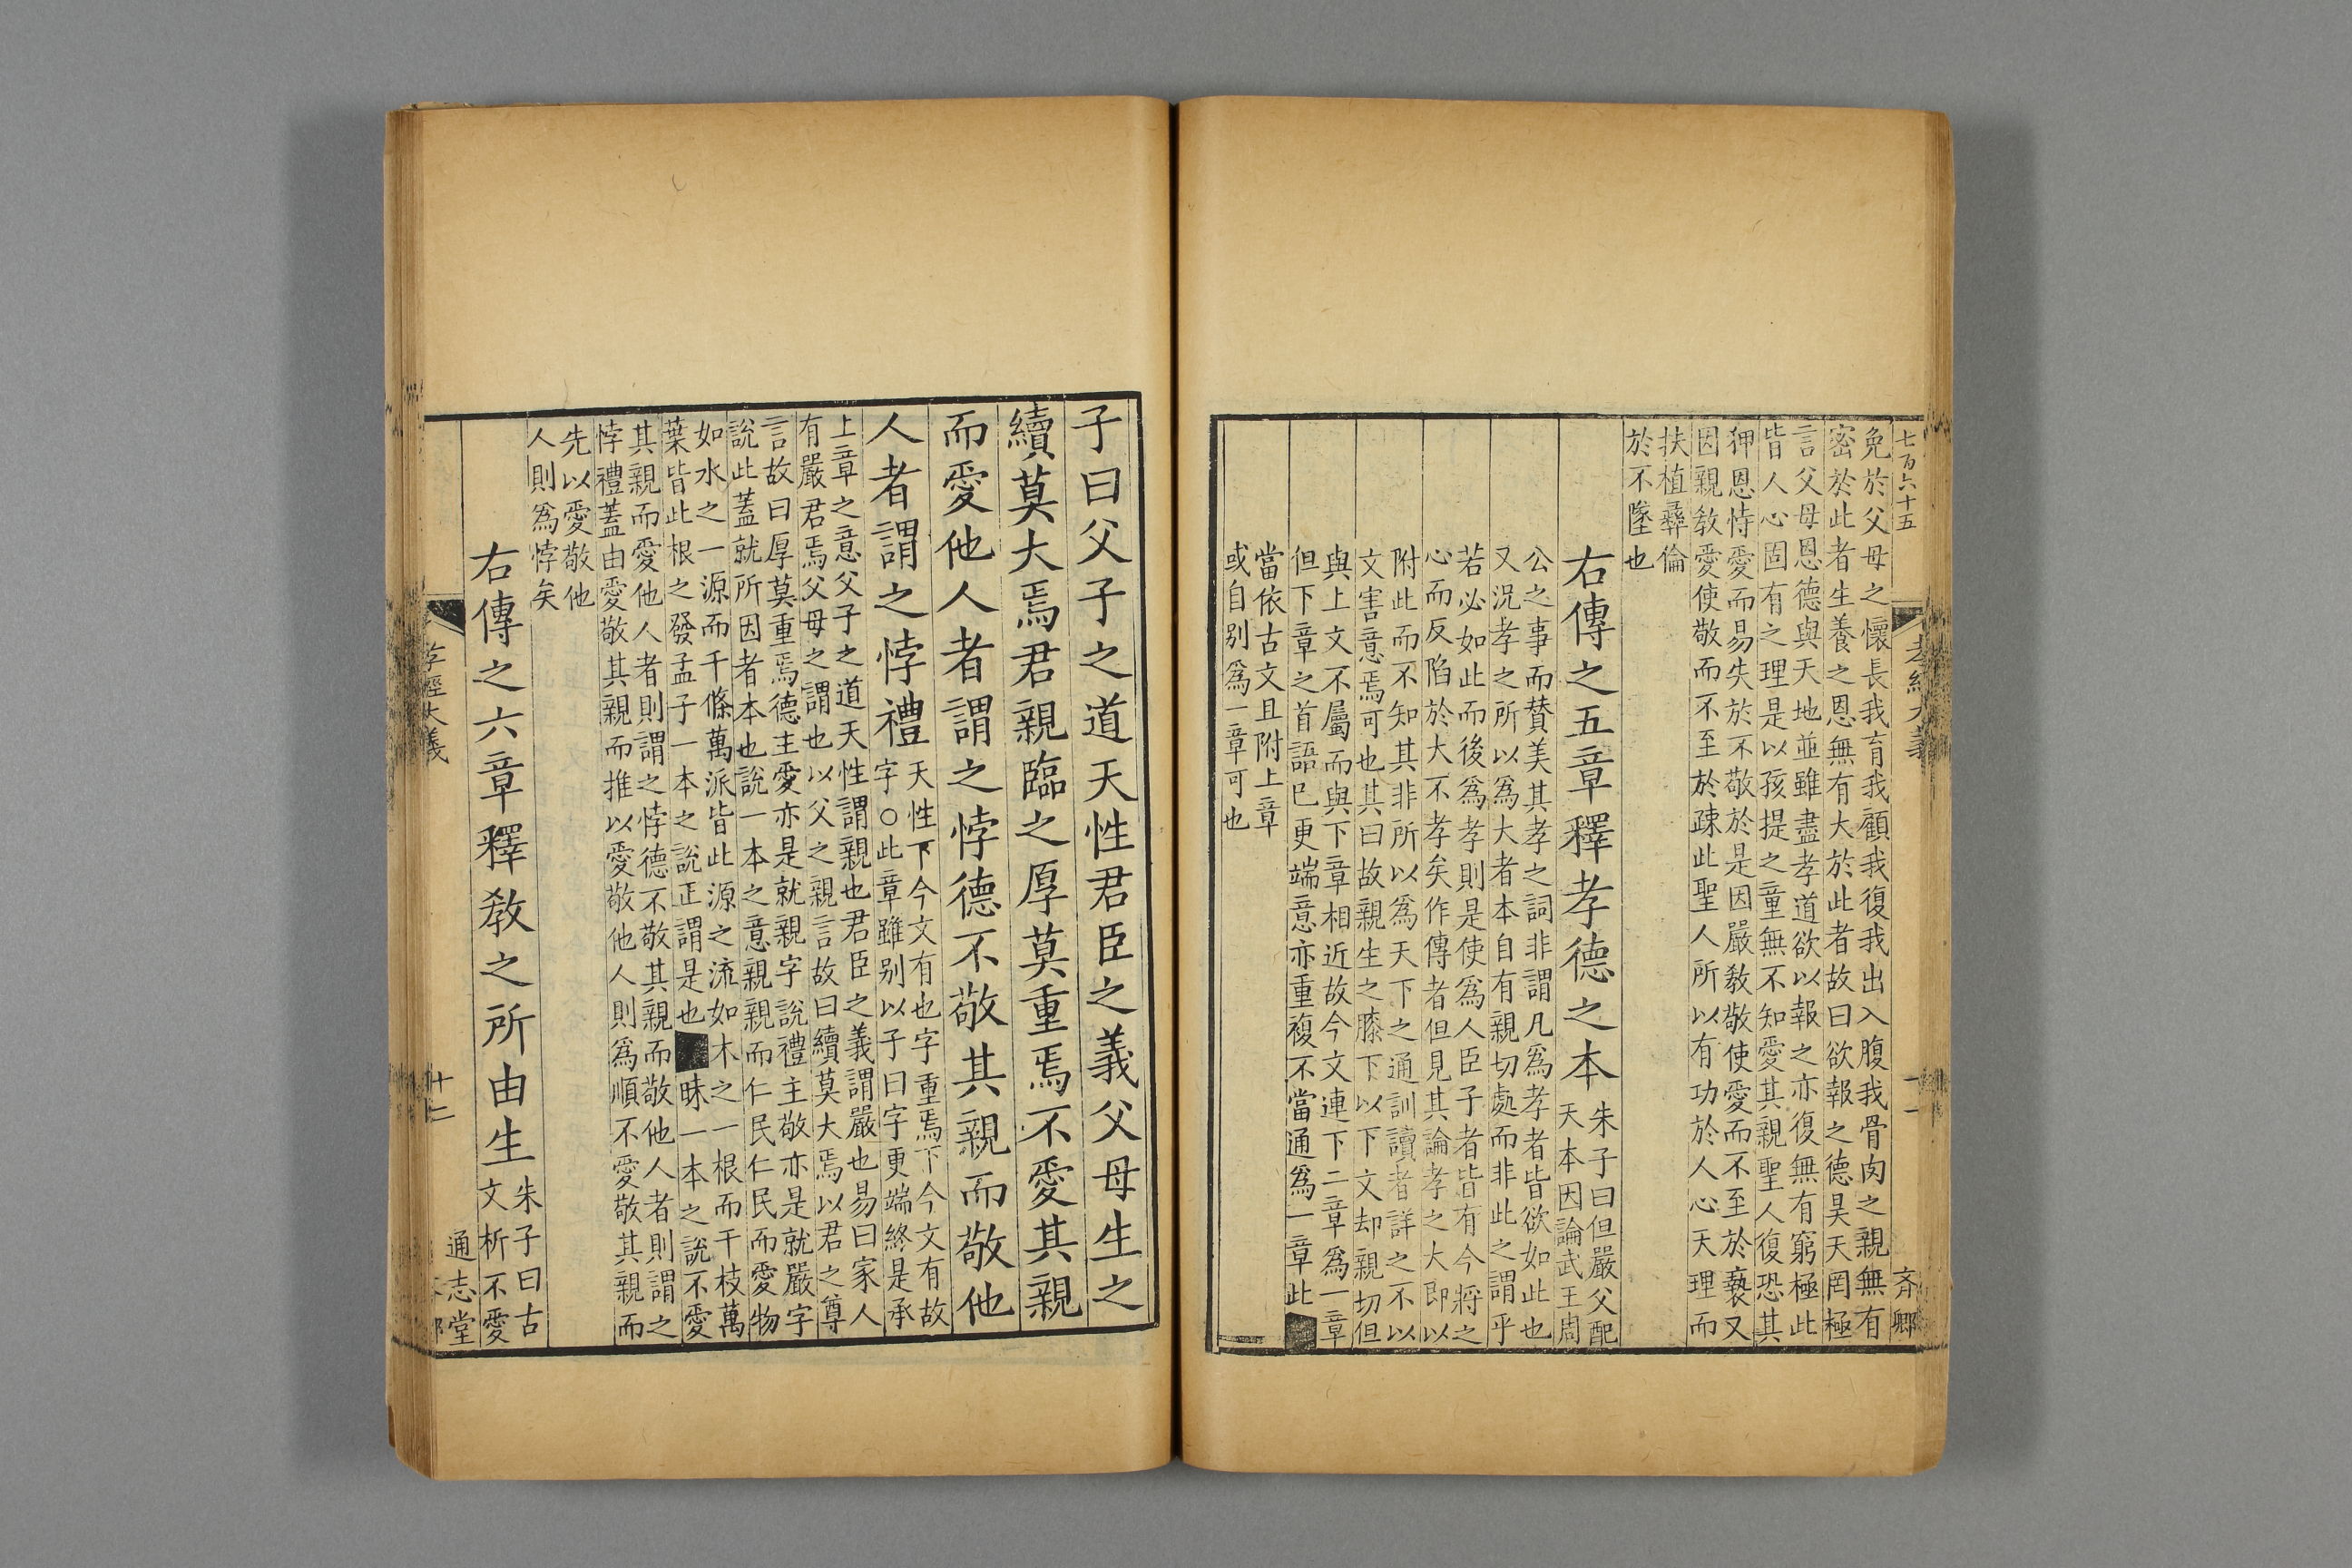 七百六十五
孝經大義
十一
斉卿
免於父母之懷長我育我顧我復我出入腹我骨肉之親無有
密於此者生養之恩無有大於此者故曰欲報之德昊天罔極
言父母恩德與天地並雖盡孝道欲以報之亦復無有窮極此
皆人心固有之理是以孩提之童無不知愛其親聖人復恐其
狎恩恃愛而易失於不敬於是因嚴教敬使愛而不至於褻又
因親教愛使敬而不至於疎此聖人所以有功於人心天理而
扶植彝倫
於不墜也
右傳之五章釋孝德之本
朱子曰但嚴父配
天本因論武王周
公之事而贊美其孝之詞非謂凡爲孝者皆欲如此也
又況孝之所以爲大者本自有親切處而非此之謂乎
若必如此而後爲孝則是使爲人臣子者皆有今將之
心而反陷於大不孝矣作傳者但見其論孝之大即以
附此而不知其非所以爲天下之通訓讀者詳之不以
文害意焉可也其曰故親生之膝下以下文却親切但
與上文不屬而與下章相近故今文連下二章爲一章
但下章之首語已更端意亦重複不當通爲一章此
當依古文且附上章
或自别爲一章可也
子曰父子之道天性君臣之義父母生之
續莫大焉君親臨之厚莫重焉不愛其親
而愛他人者謂之悖德不敬其親而敬他
人者謂之悖禮
天性下今文有也字重焉下今文有故
字○此章雖别以子曰字更端終是承
上章之意父子之道天性謂親也君臣之義謂嚴也易曰家人
有嚴君焉父母之謂也以父之親言故曰續莫大焉以君之尊
言故曰厚莫重焉德主愛亦是就親字說禮主敬亦是就嚴字
說此蓋就所因者本也說一本之意親親而仁民仁民而愛物
如水之一源而千條萬派皆此源之流如木之一根而千枝萬
葉皆此根之發孟子一本之說正謂是也
昧一本之說不愛
其親而愛他人者則謂之悖德不敬其親而敬他人者則謂之
悖禮蓋由愛敬其親而推以愛敬他人則爲順不愛敬其親而
先以愛敬他
人則爲悖矣
右傳之六章釋教之所由生
朱子曰古
文析不愛
孝經大義
十二
通志堂